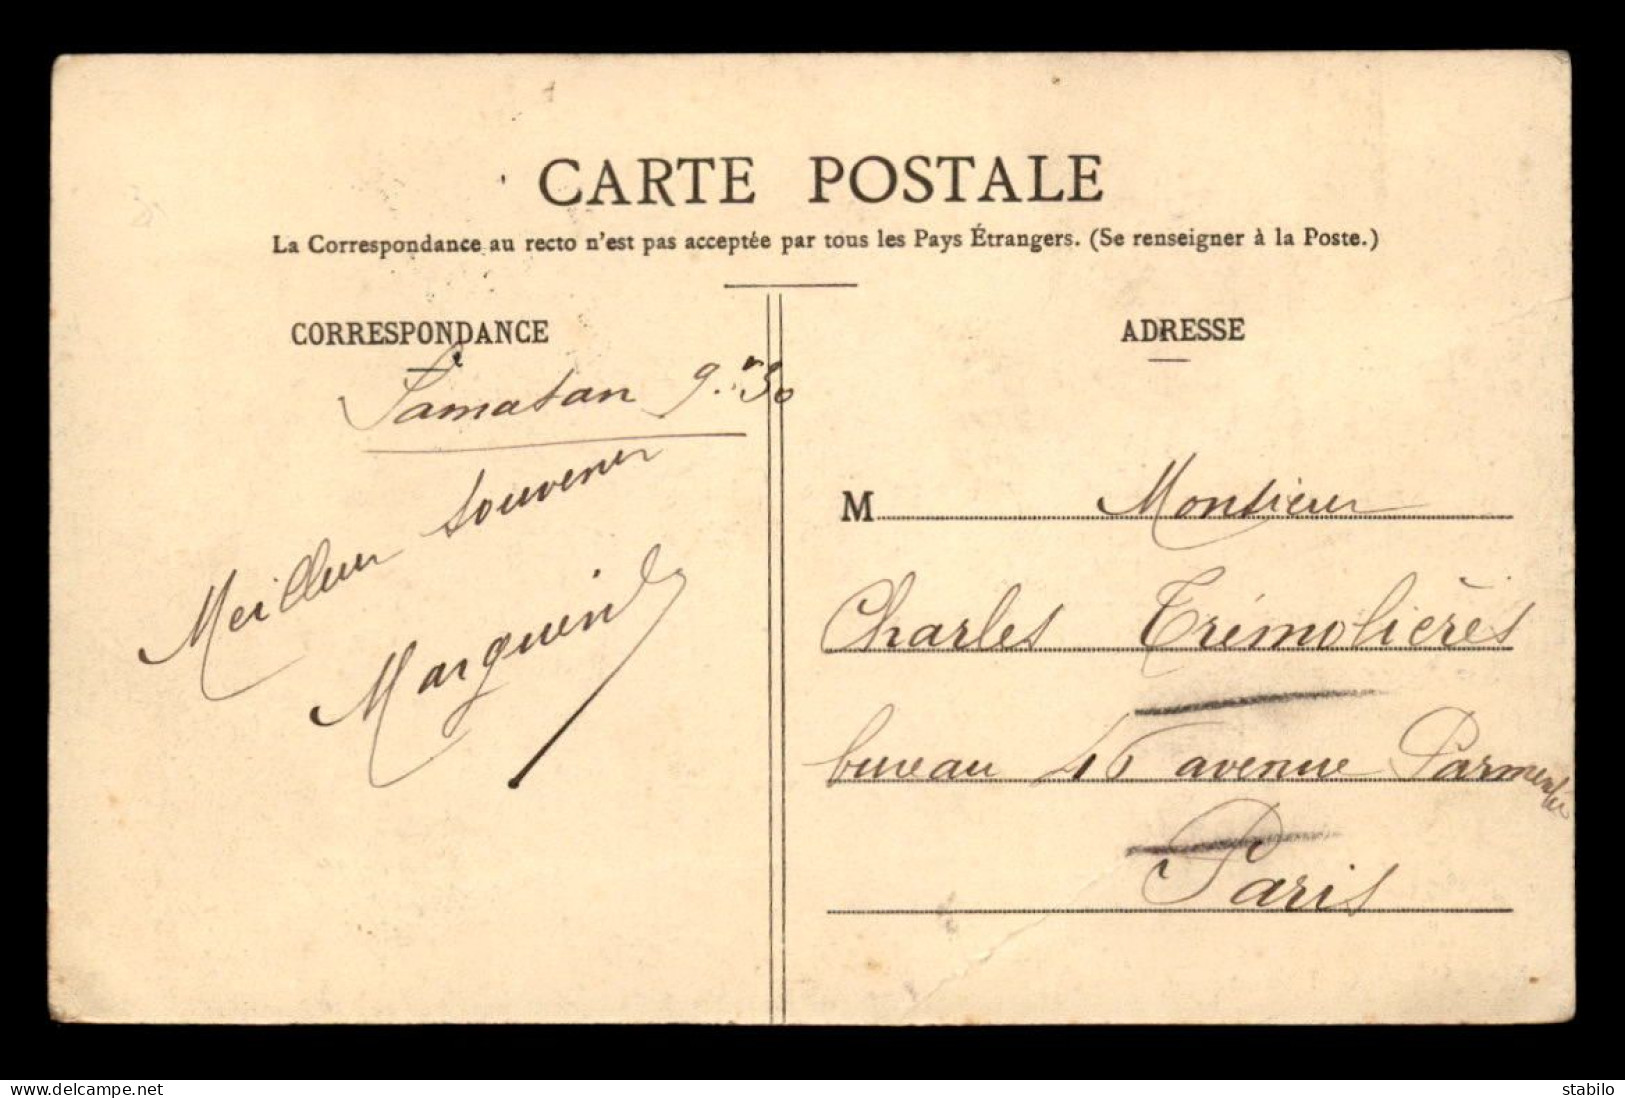 CARTE POSTALE
La Correspondance au recto n'est pas acceptée par tous les Pays Étrangers. (Se renseigner à la Poste.)
CORRESPONDANCE
Samatan 9
Meilleur souvenir
ADRESSE
M Monsieur
Charles Trémolières
bureau avenue Parmentier
Paris
https://www.delcampe.net
stabilo